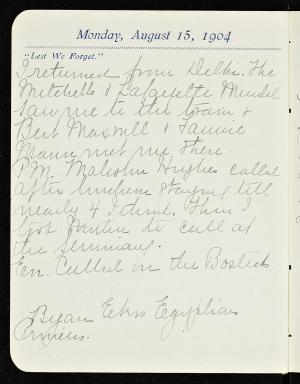 Monday, August 15, 1904
"Lest We Forget."
I returned from Delhi. The
Mitchells & Lafayette Mendel
saw me to the train &
Bert Maxwell & Fannie
Mann met me there.
P.M. Malcolm Hughes called
after luncheon staying till
nearly 4 I think. Then I
took to call at
the Seminary.
Ev. Called on the Bosticks
Ryan Ekes Egyptian